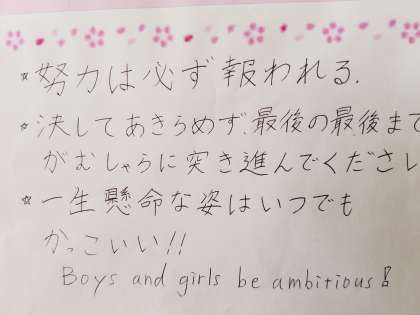 ☆努力は必ず報われる.
☆決してあきらめず.最後の最後まで
がむしゃらに突き進んでくださし
☆一生懸命な姿はいつでも
かっこいい!!
Boys and girls be ambitious!